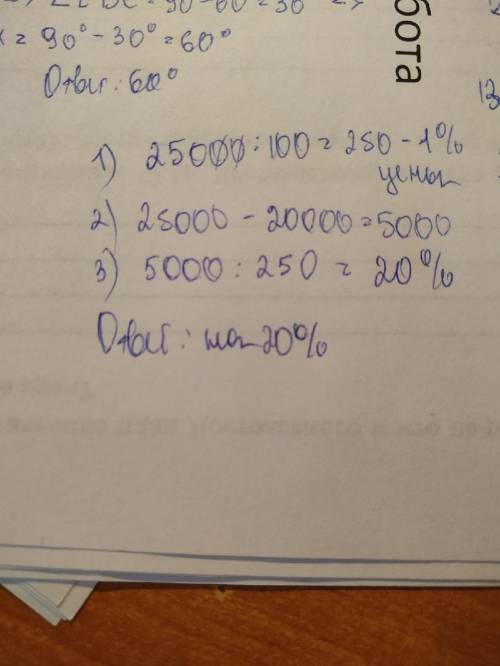 = 90° - 30° = 60°
Ответ: 60°
бота
13
1) 25000 : 100 = 250 - 1%
цены
2) 25000 - 20000 = 5000
3) 5000 : 250 = 20%
Ответ: на 20%